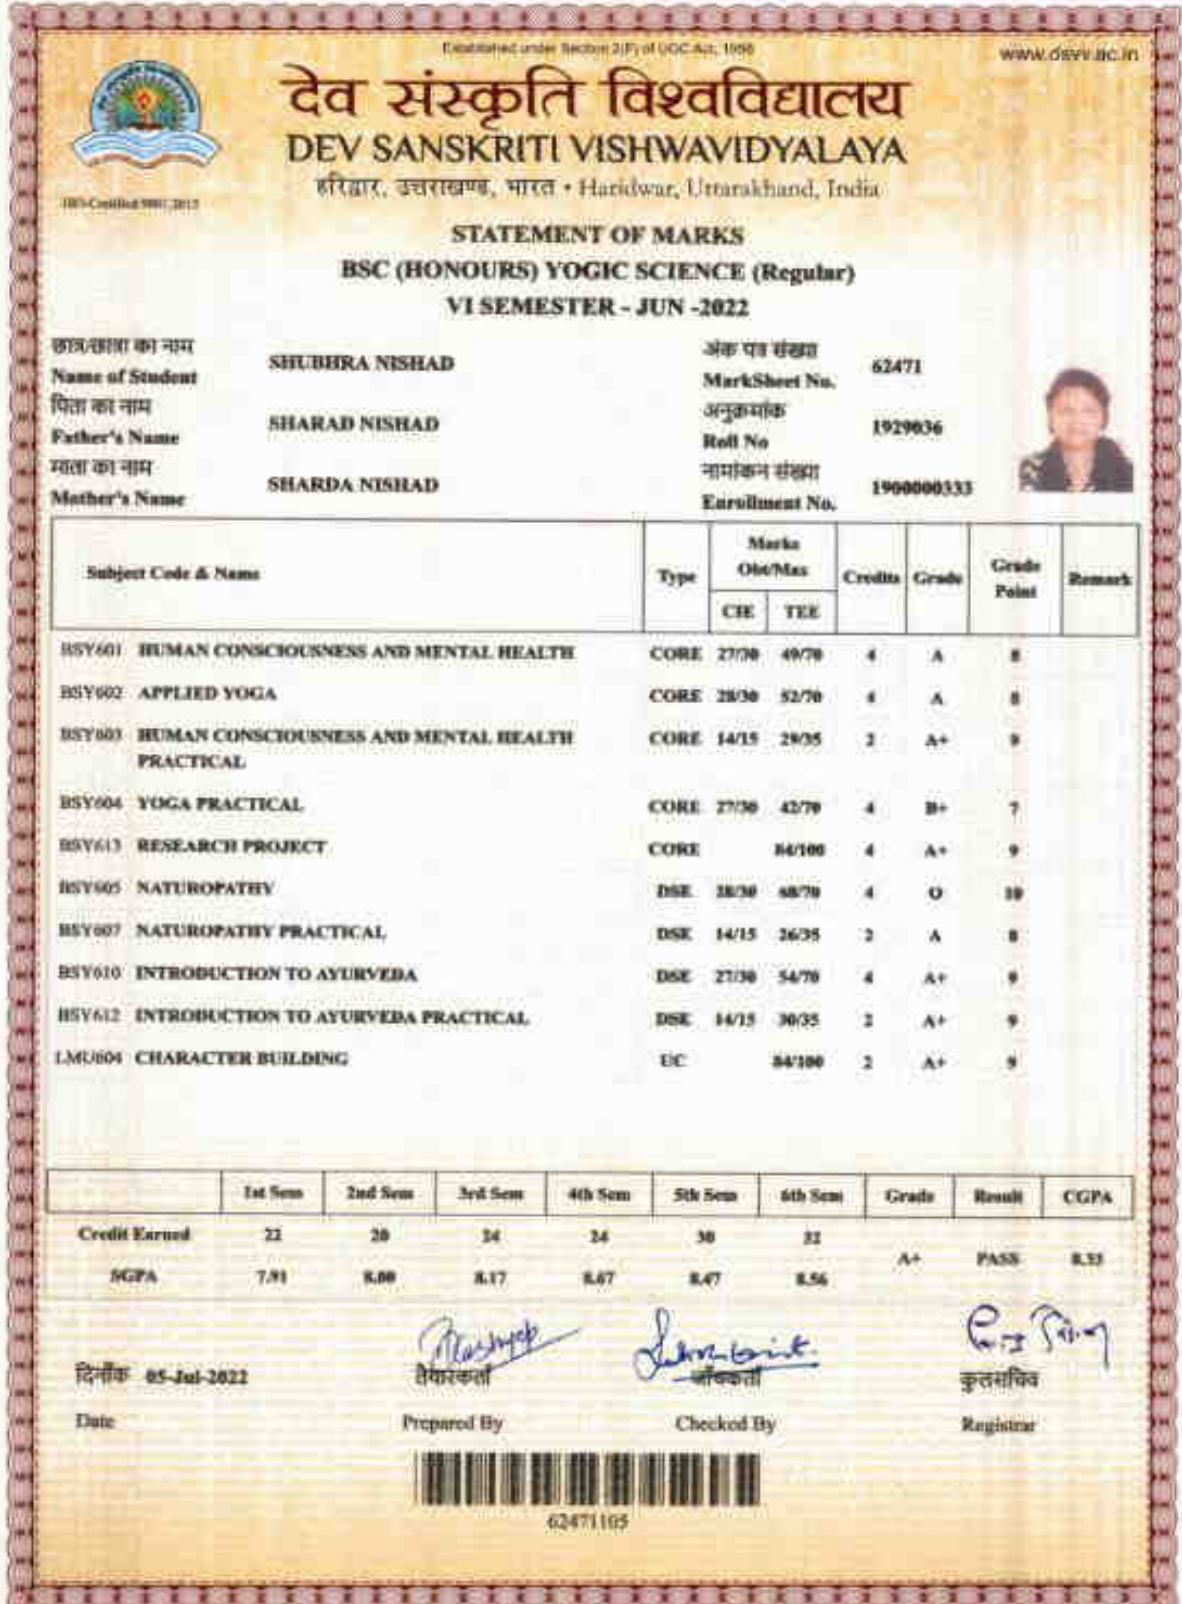 Established under Section 2(F) of UGC Act, 1956
www.dsvv.ac.in
देव संस्कृति विश्वविद्यालय
DEV SANSKRITI VISHWAVIDYALAYA
हरिद्वार, उत्तराखण्ड, भारत • Haridwar, Uttarakhand, India
ISO-Certified 9001:2015
STATEMENT OF MARKS
BSC (HONOURS) YOGIC SCIENCE (Regular)
VI SEMESTER - JUN -2022
छात्र/छात्रा का नाम अंक पत्र संख्या
Name of Student SHUBHRA NISHAD MarkSheet No. 62471
पिता का नाम अनुक्रमांक
Father's Name SHARAD NISHAD Roll No 1929036
माता का नाम नामांकन संख्या
Mother's Name SHARDA NISHAD Enrollment No. 1900000333
Subject Code & Name Type Marks Obt/Max Credits Grade Grade Point Remark
CIE TEE
BSY601 HUMAN CONSCIOUSNESS AND MENTAL HEALTH CORE 27/30 49/70 4 A 8
BSY602 APPLIED YOGA CORE 28/30 52/70 4 A 8
BSY603 HUMAN CONSCIOUSNESS AND MENTAL HEALTH CORE 14/15 29/35 2 A+ 9
PRACTICAL
BSY604 YOGA PRACTICAL CORE 27/30 42/70 4 B+ 7
BSY613 RESEARCH PROJECT CORE 84/100 4 A+ 9
BSY605 NATUROPATHY DSE 28/30 68/70 4 O 10
BSY607 NATUROPATHY PRACTICAL DSE 14/15 26/35 2 A 8
BSY610 INTRODUCTION TO AYURVEDA DSE 27/30 54/70 4 A+ 9
BSY612 INTRODUCTION TO AYURVEDA PRACTICAL DSE 14/15 30/35 2 A+ 9
LMU604 CHARACTER BUILDING UC 84/100 2 A+ 9
1st Sem 2nd Sem 3rd Sem 4th Sem 5th Sem 6th Sem Grade Result CGPA
Credit Earned 22 20 24 24 30 32
A+ PASS 8.33
SGPA 7.91 8.00 8.17 8.67 8.47 8.56
दिनाँक 05-Jul-2022 तैयारकर्ता जाँचकर्ता कुलसचिव
Date Prepared By Checked By Registrar
62471105